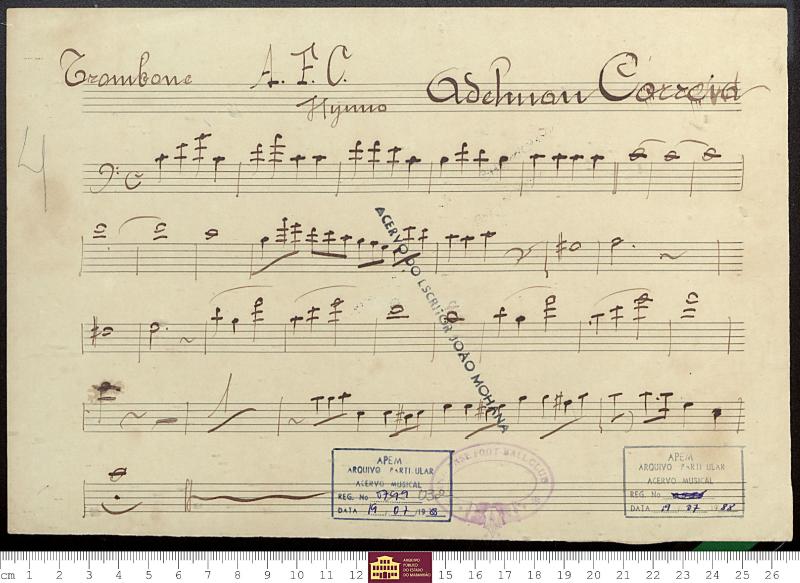 Trombone A. F. C. Adelman Correia
Hymno
4
ACERVO DO ESCRITOR JOÃO MOHANA
APEM
ARQUIVO PARTI ULAR
ACERVO MUSICAL
REG. No 0799 032
DATA 19 / 07 / 1988
FOOT-BALL CLUB
APEM
ARQUIVO PARTI ULAR
ACERVO MUSICAL
REG. No
DATA 19 / 07 / 1988
cm 1 2 3 4 5 6 7 8 9 10 11 12 15 16 17 18 19 20 21 22 23 24 25 26
ARQUIVO
PÚBLICO
DO ESTADO
DO MARANHÃO